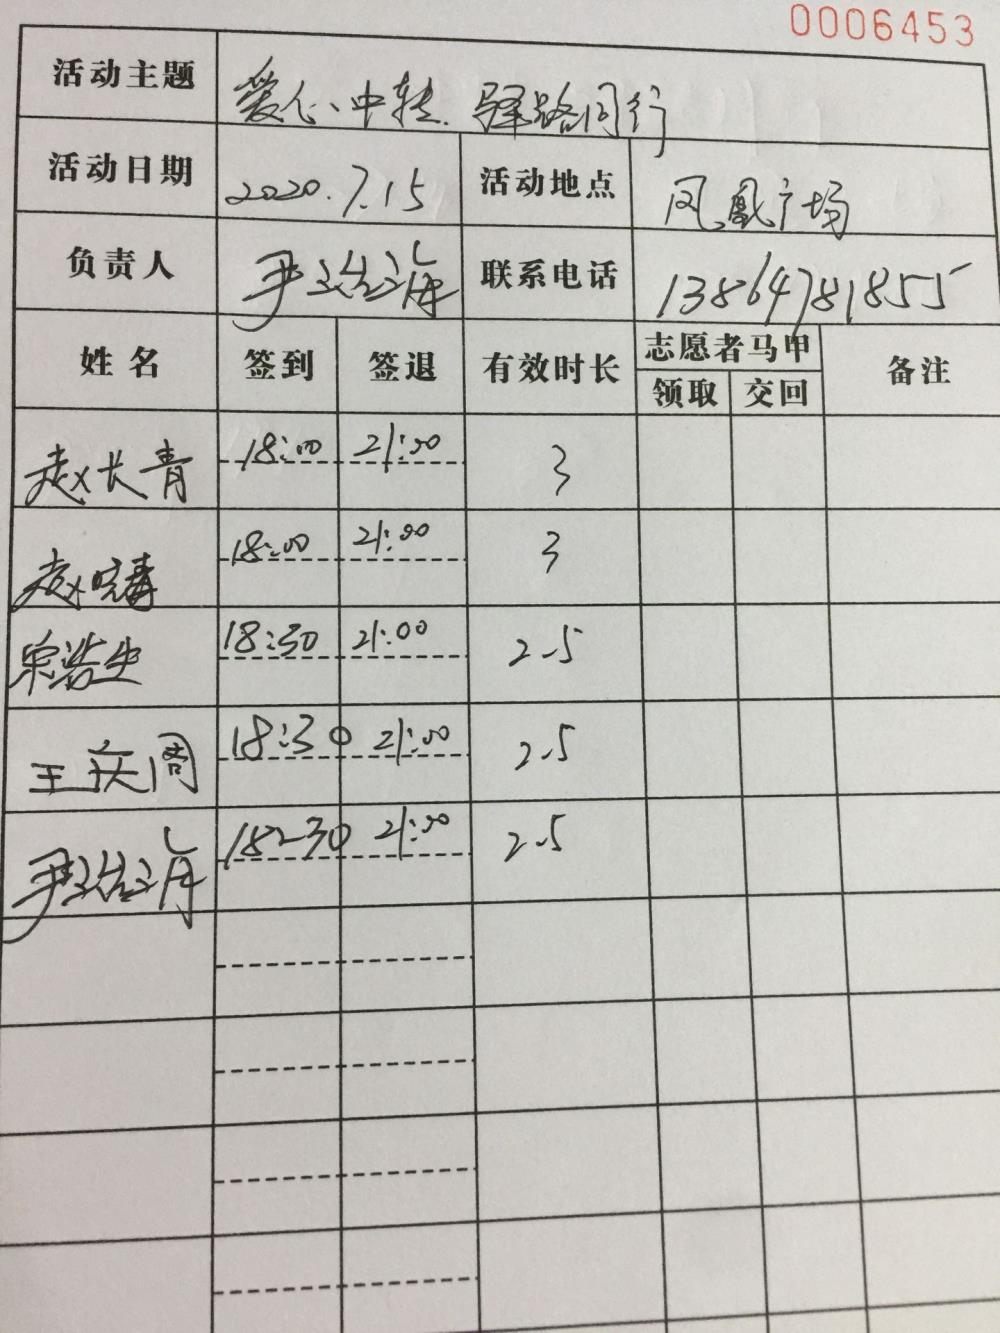 0006453
活动主题 爱心中转.驿路同行
活动日期 2020.7.15 活动地点 凤凰广场
负责人 尹治海 联系电话 13864781855
姓名 签到 签退 有效时长 志愿者马甲 备注
领取 交回
赵长青 18:00 21:00 3
18:00 21:00 3
宋浩生 18:30 21:00 2.5
王庆周 18:30 21:00 2.5
尹治海 18:30 21:00 2.5